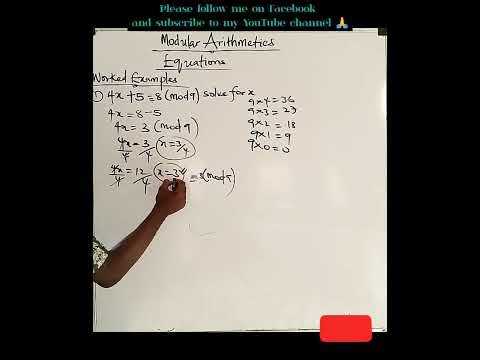 Please follow me on Facebook
and subscribe to my YouTube channel 🙏
Modular Arithmetics
Equations
Worked Examples
1) 4x + 5 = 8 (mod 9) solve for x
4x = 8 - 5
4x = 3 (mod 9)
4x/4 = 3/4 x = 3/4
4x/4 = 12/4 x = 3 = 3(mod 9)
9x4 = 36
9x3 = 27
9x2 = 18
9x1 = 9
9x0 = 0